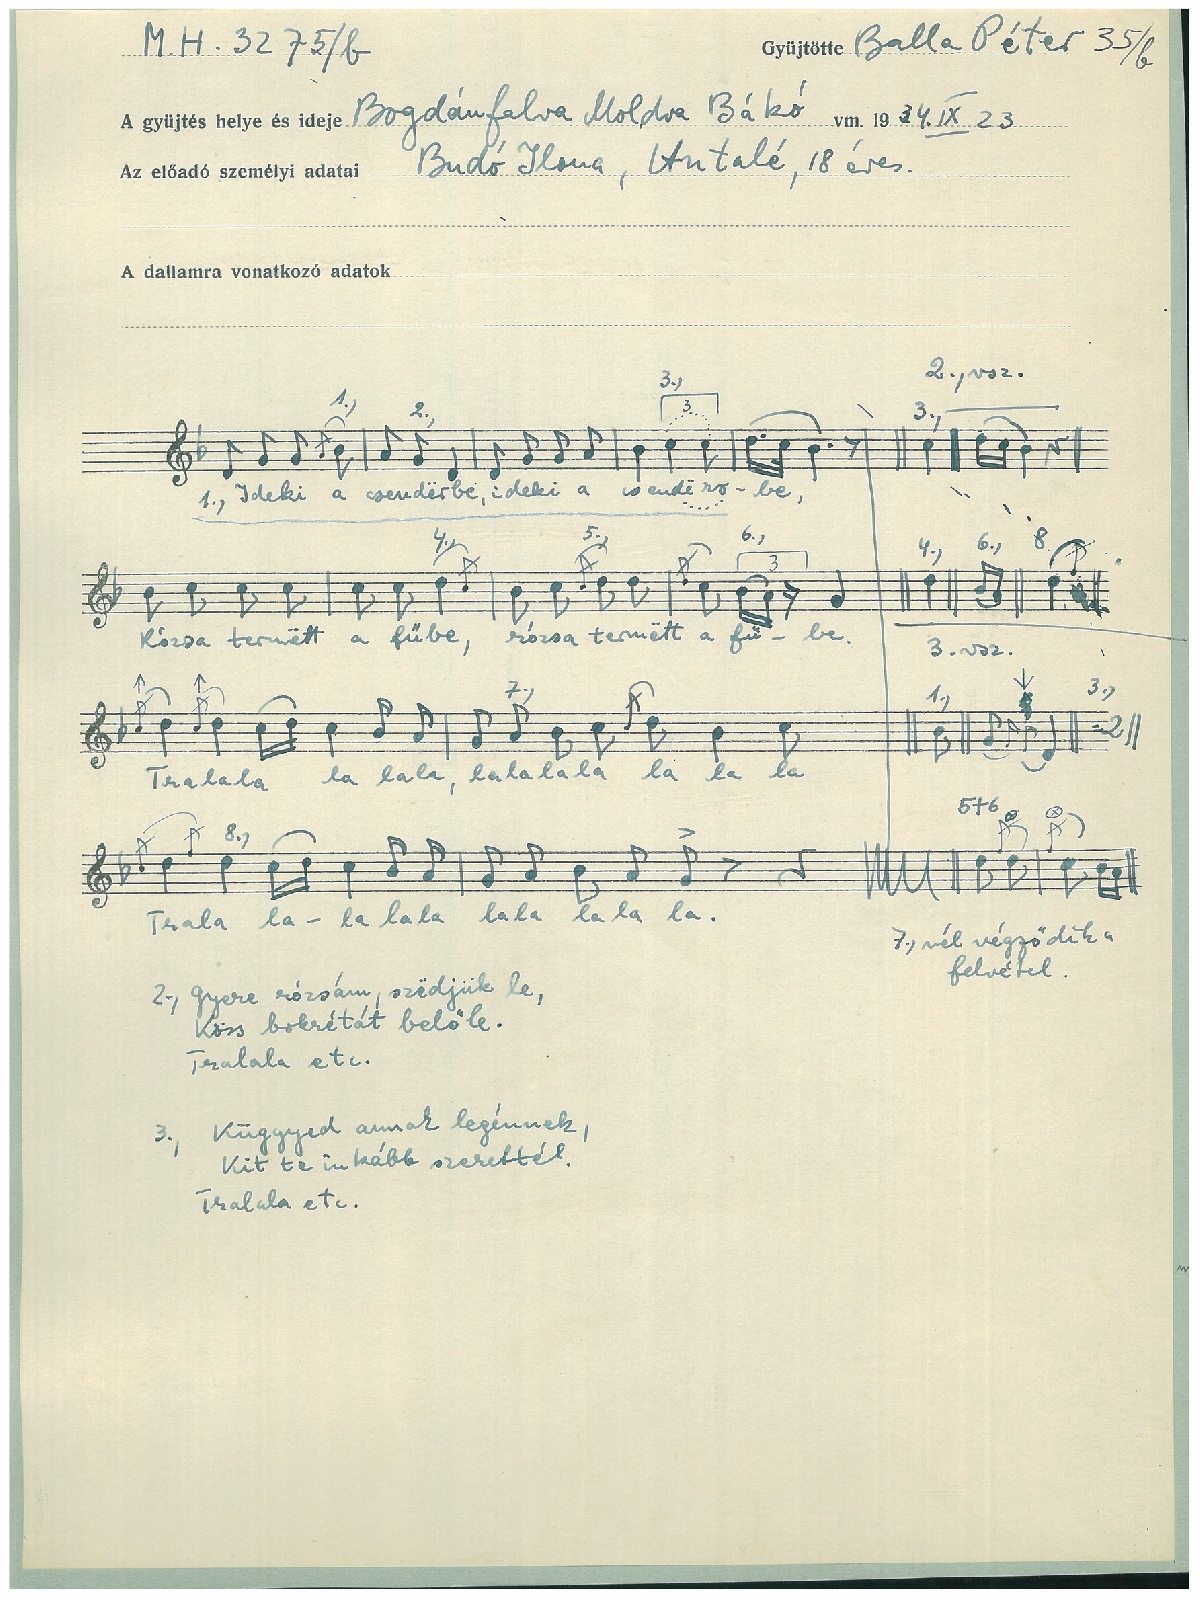 M. H. 3275/b
Gyüjtötte Balla Péter 35/b
A gyüjtés helye és ideje Bogdánfalva Moldva Bákó vm. 1934. IX 23
Az előadó személyi adatai Budó Ilona, Antalé, 18 éves.
A dallamra vonatkozó adatok
2., vsz.
1., 2., 3., 3 3.,
1., Ideki a csendërbe, ideki a csendërbe,
4., 5., 6., 3 4., 6., 8
Rózsa termëtt a fübe, rózsa termëtt a fü - be.
3. vsz.
7., 1., 3.,
=2
Tralala la lala, lalalala la la la
8., 5+6
Trala la - la lala lala lala la.
7., nél végződik a
felvétel.
2., Gyere rózsám, szëdjük le,
Köss bokrétát belőle.
Tralala etc.
3., Küggyed annak legénnek,
Kit te inkább szerettél.
Tralala etc.